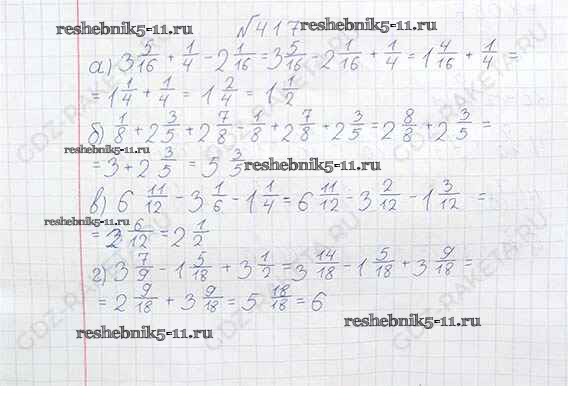 №417
reshebnik5-11.ru
reshebnik5-11.ru
а) 3 5/16 + 1/4 - 2 1/16 = 3 5/16 - 2 1/16 + 1/4 = 1 4/16 + 1/4 =
= 1 1/4 + 1/4 = 1 2/4 = 1 1/2
б) 1/8 + 2 3/5 + 2 7/8 = 1/8 + 2 7/8 + 2 3/5 = 2 8/8 + 2 3/5 =
reshebnik5-11.ru
= 3 + 2 3/5 = 5 3/5
reshebnik5-11.ru
в) 6 11/12 - 3 1/6 - 1 1/4 = 6 11/12 - 3 2/12 - 1 3/12 =
reshebnik5-11.ru
= 2 6/12 = 2 1/2
г) 3 7/9 - 1 5/18 + 3 1/2 = 3 14/18 - 1 5/18 + 3 9/18 =
= 2 9/18 + 3 9/18 = 5 18/18 = 6
reshebnik5-11.ru
reshebnik5-11.ru
GDZ-RAKETA.RU
GDZ-RAKETA.RU
GDZ-RAKETA.RU
GDZ-RAKETA.RU